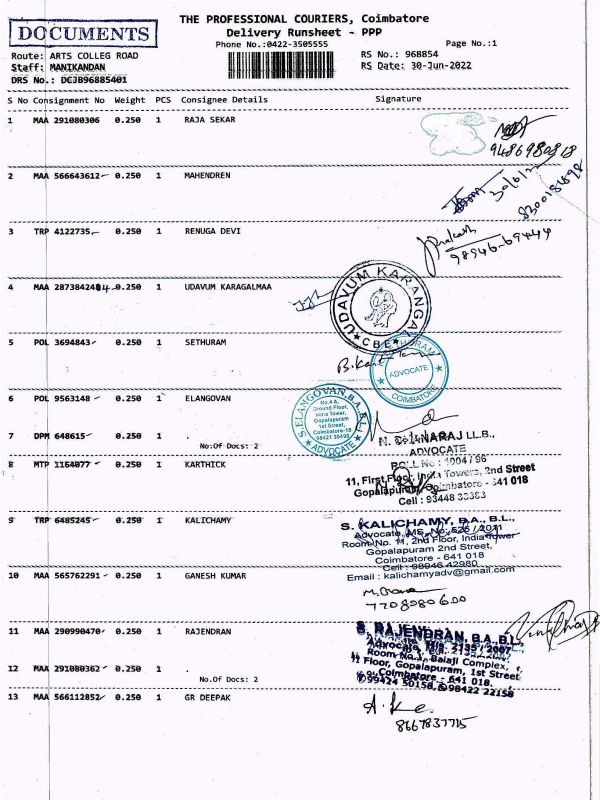 DOCUMENTS
THE PROFESSIONAL COURIERS, Coimbatore
Delivery Runsheet - PPP
Phone No.:0422-3505555
Page No.:1
Route: ARTS COLLEG ROAD
Staff: MANIKANDAN
DRS No.: DCJB96885401
RS No.: 968854
RS Date: 30-Jun-2022
S No Consignment No Weight PCS Consignee Details Signature
1 MAA 291080306 0.250 1 RAJA SEKAR
9486980818
2 MAA 566643612 0.250 1 MAHENDREN
30/6/2
8300181898
3 TRP 4122735 0.250 1 RENUGA DEVI
98946-69444
4 MAA 287384248 0.250 1 UDAVUM KARAGALMAA
UDAVUM KARANGAL
CBE
5 POL 3694843 0.250 1 SETHURAM
ADVOCATE
COIMBATORE
6 POL 9563148 0.250 1 ELANGOVAN
S.ELANGOVAN,B.A.,B.L.,
No.4 A,
Ground Floor,
India Tower,
Gopalapuram
1st Street,
Coimbatore-18
98421 35499
ADVOCATE
7 DPM 648615 0.250 1 .
No.Of Docs: 2
N. LL.B.,
ADVOCATE
ROLL No : 1004 / 96
11, First Floor, India Towers, 2nd Street
Gopalapuram, Coimbatore - 641 018
Cell : 93448 33383
8 MTP 1164077 0.250 1 KARTHICK
9 TRP 6485245 0.250 1 KALICHAMY
S. KALICHAMY, B.A., B.L.,
Advocate, MS. No: 526 / 2011
Room No. 11, 2nd Floor, India Tower
Gopalapuram 2nd Street,
Coimbatore - 641 018
Cell : 98946 42980
Email : kalichamyadv@gmail.com
10 MAA 565762291 0.250 1 GANESH KUMAR
7708980600
11 MAA 290990470 0.250 1 RAJENDRAN
S. RAJENDRAN, B.A.,B.L.,
Advocate, M/s. 2135 / 2007
Room No.1, Balaji Complex,
Floor, Gopalapuram, 1st Street
Coimbatore - 641 018.
99424 50158, 98422 22158
12 MAA 291080362 0.250 1 .
No.Of Docs: 2
13 MAA 566112852 0.250 1 GR DEEPAK
8667837715